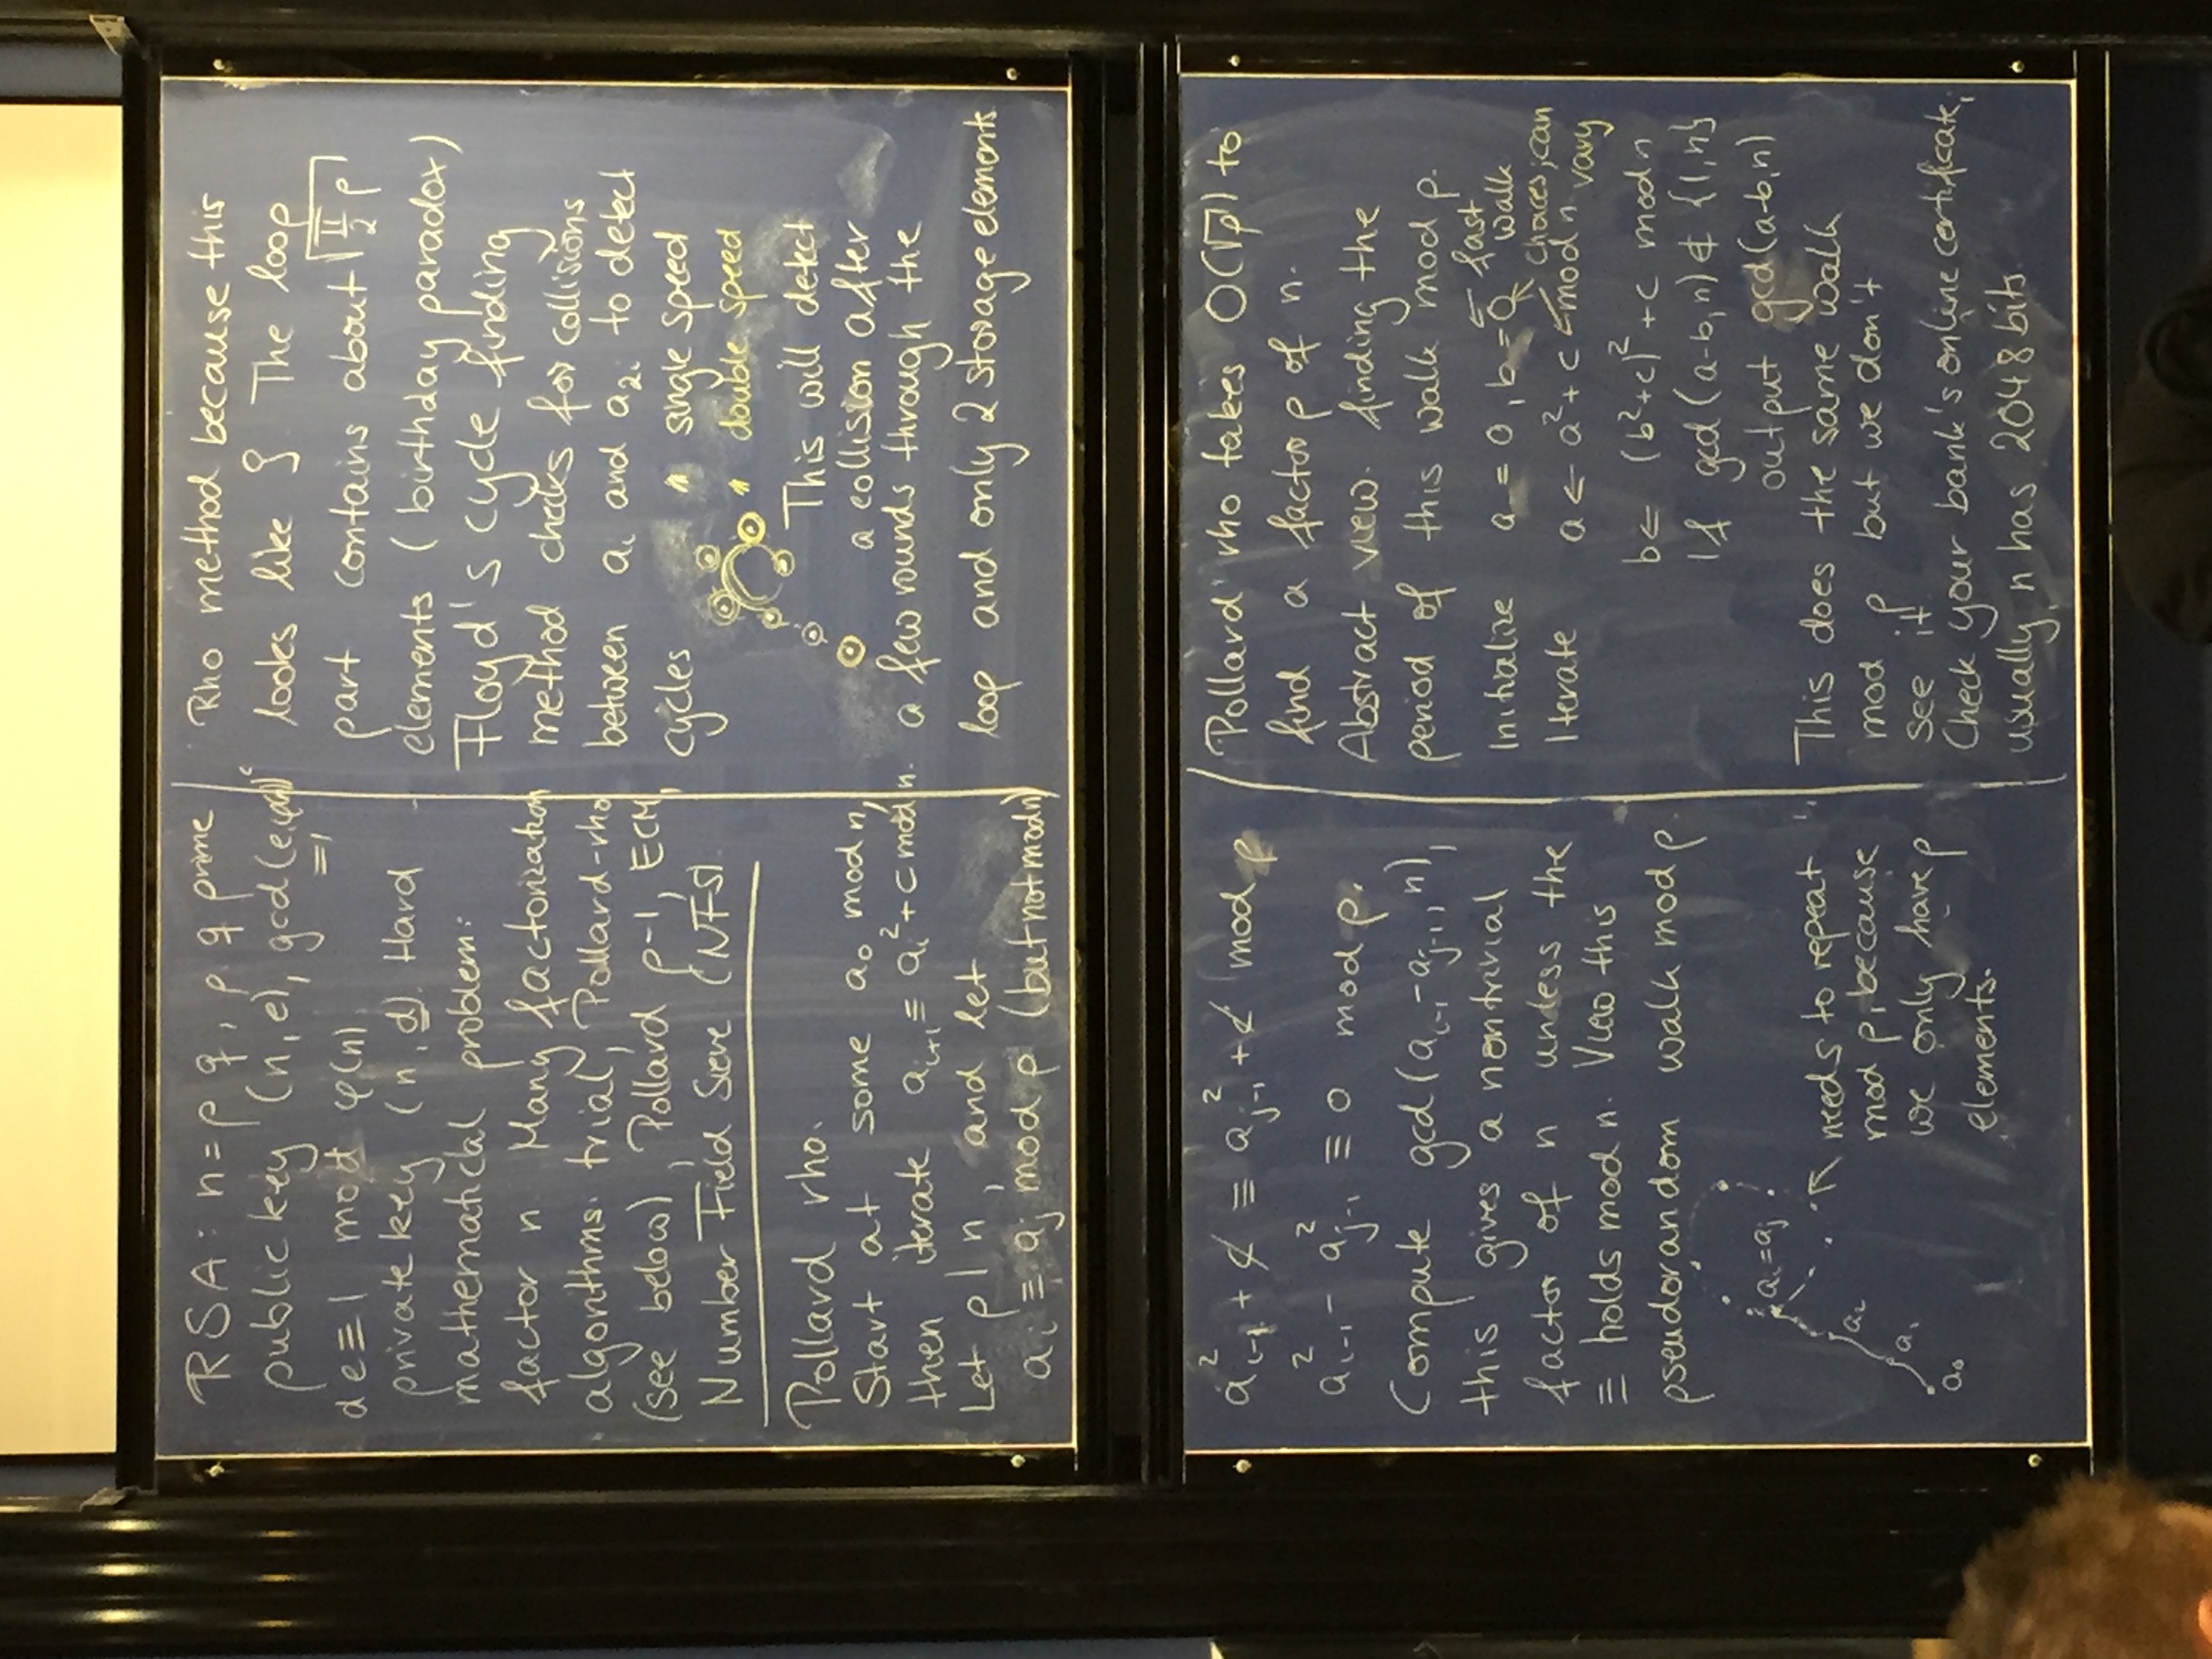 RSA: n = p q, p q prime
public key (n, e), gcd(e, φ(n))
= 1
de ≡ 1 mod φ(n)
private key (n, d). Hard
mathematical problem:
factor n Many factorization
algorithms: trial, Pollard-rho
(see below), Pollard p-1, ECM,
Number Field Sieve (NFS)
Pollard rho.
Start at some a₀ mod n,
then iterate aᵢ₊₁ ≡ aᵢ² + c mod n.
Let p | n, and let
aᵢ ≡ aⱼ mod p (but not mod n)
Rho method because this
looks like ρ The loop
part contains about √(π/2 p)
elements (birthday paradox)
Floyd's cycle finding
method checks for collisions
between aᵢ and a₂ᵢ to detect
cycles
" single speed
" double speed
This will detect
a collision after
a few rounds through the
loop and only 2 storage elements
a²ᵢ₋₁ + c ≡ a²ⱼ₋₁ + c mod p
a²ᵢ₋₁ - a²ⱼ₋₁ ≡ 0 mod p.
Compute gcd(aᵢ₋₁ - aⱼ₋₁, n),
this gives a nontrivial
factor of n unless the
≡ holds mod n. View this
pseudorandom walk mod p
aᵢ = aⱼ
a₂
a₁
a₀
needs to repeat
mod p, because
we only have p
elements.
Pollard rho takes O(√p) to
find a factor p of n.
Abstract view: finding the
period of this walk mod p.
Initialize a = 0, b = 0 ← fast walk
choices, can vary
Iterate a ← a² + c ← mod n
b ← (b² + c)² + c mod n
If gcd(a-b, n) ∉ {1, n}
output gcd(a-b, n)
This does the same walk
mod p but we don't
see it
Check your bank's online certificate,
usually, n has 2048 bits.